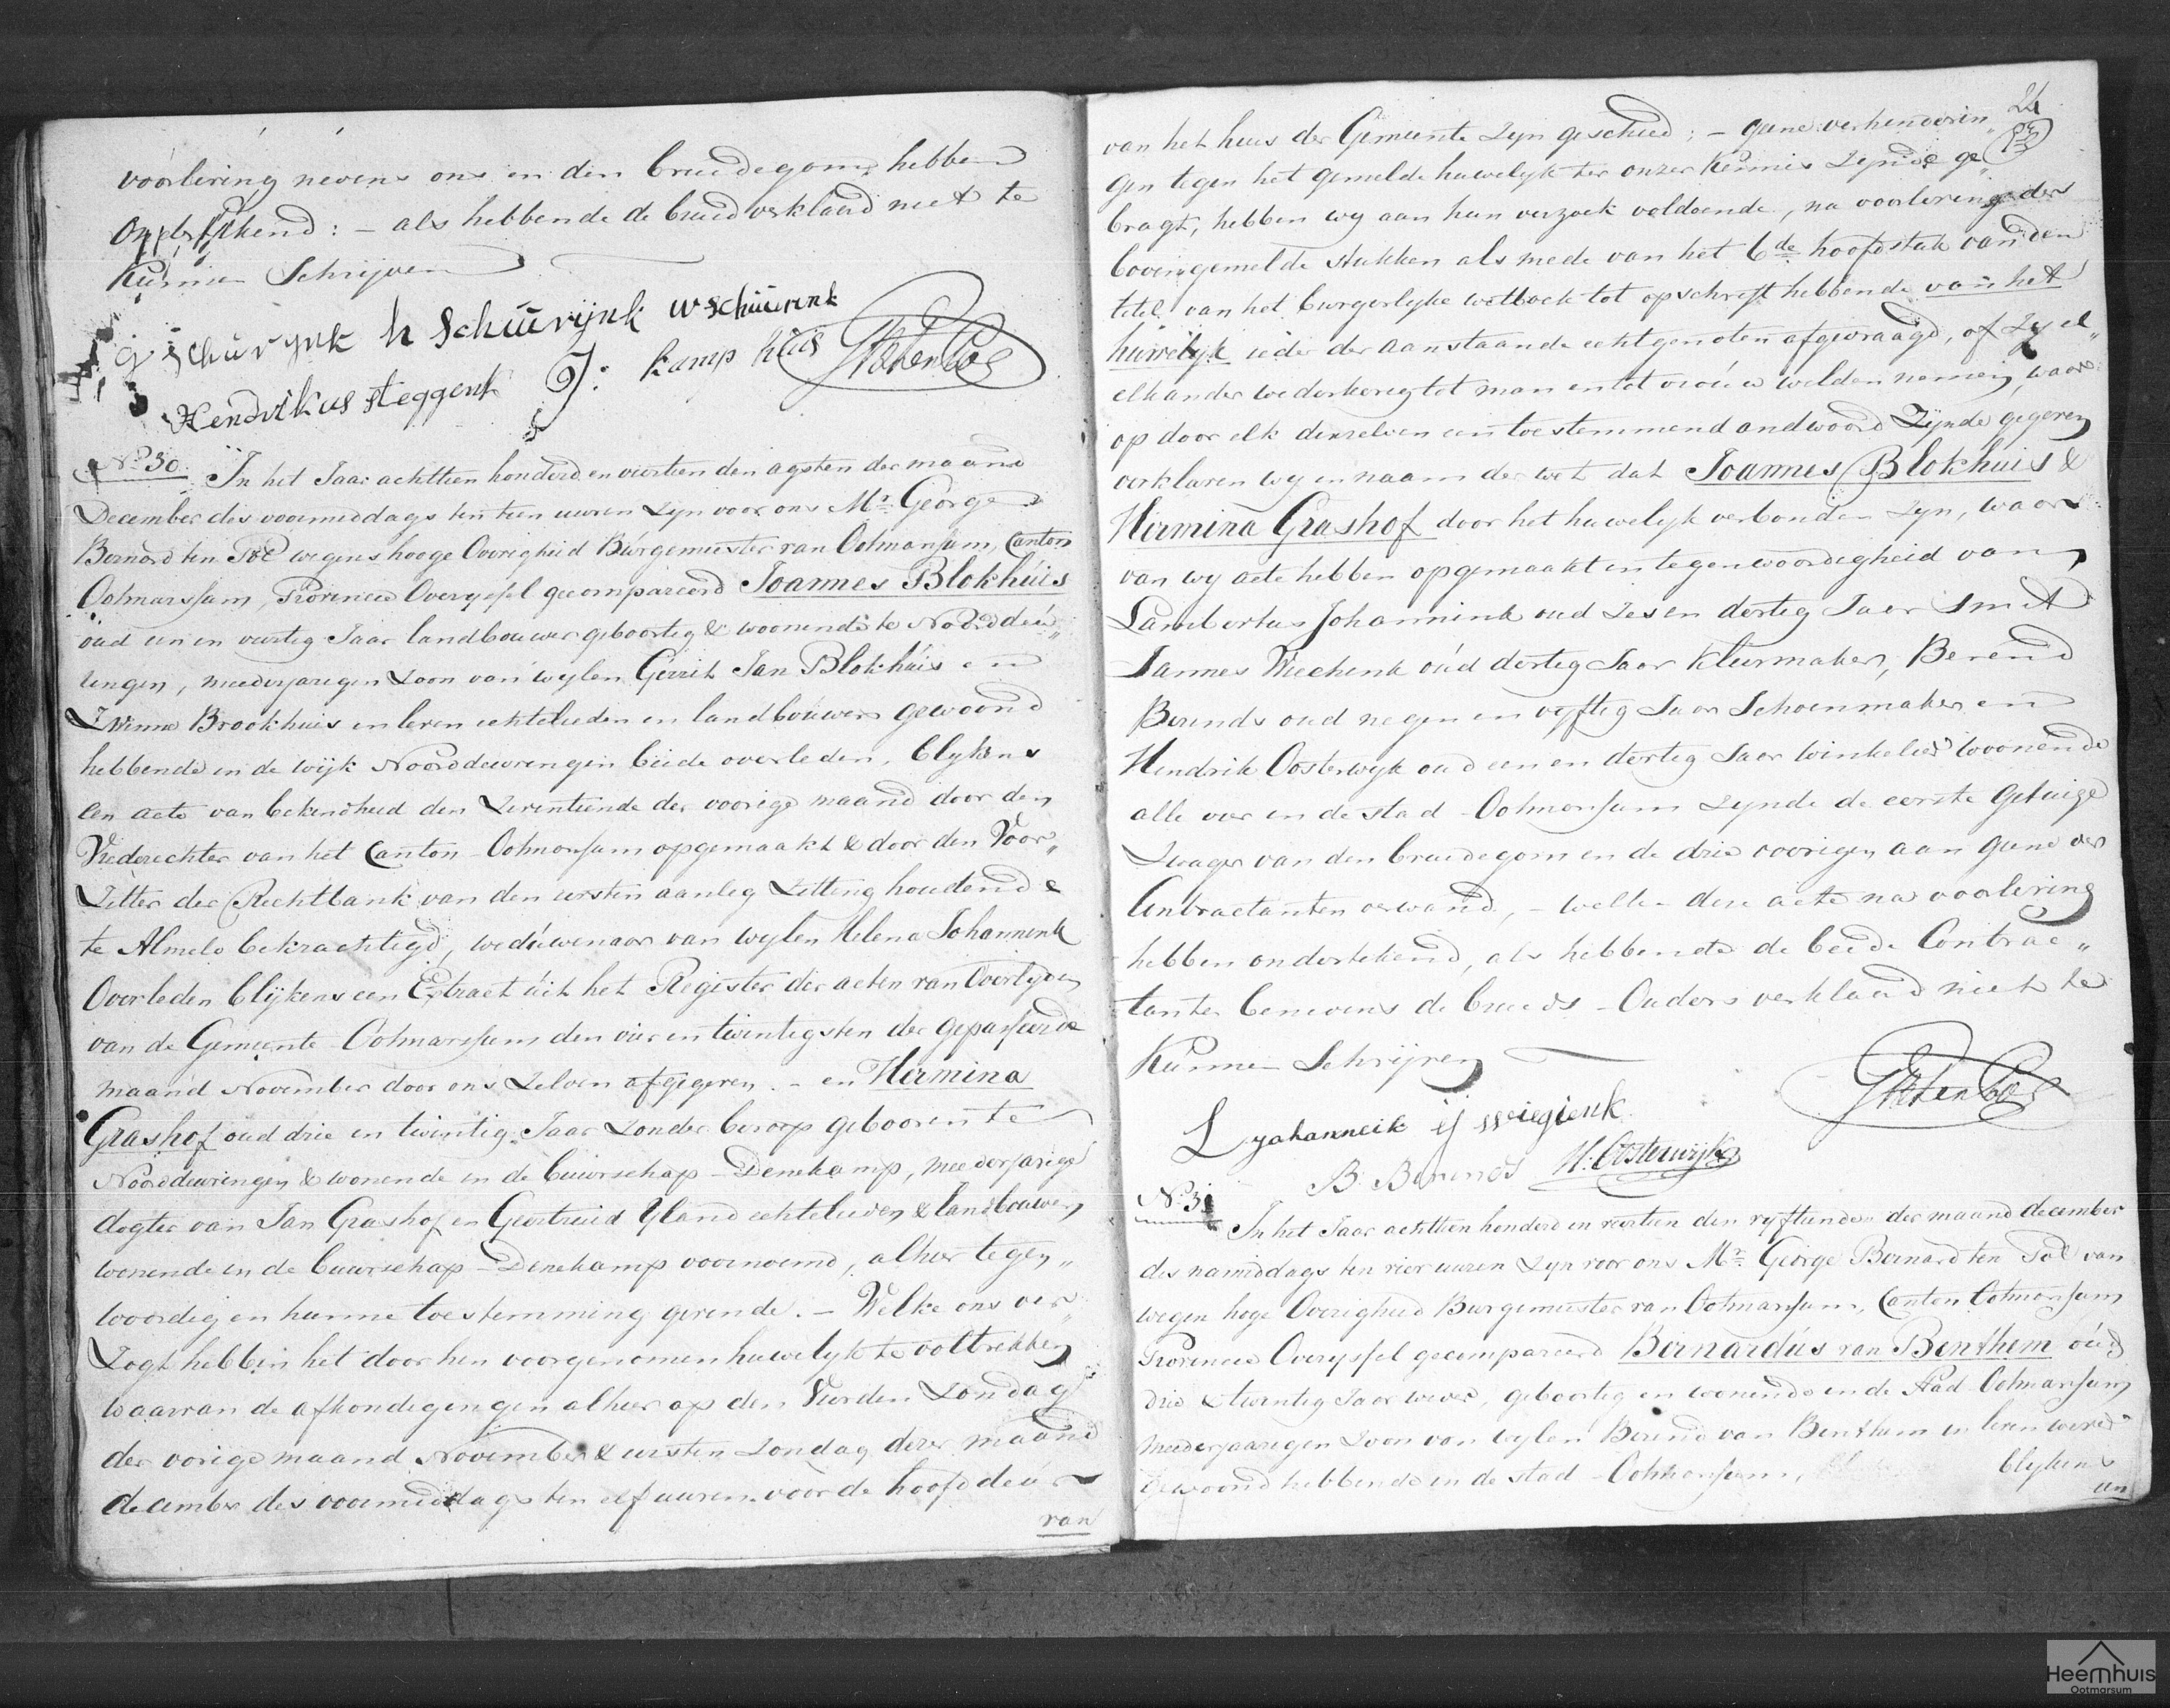 voorlezing nevens ons en den bruidegom hebben
: – als hebbende de bruid verklaard niet te
Kunnen Schrijven
g schuvynk h Schuurijnk w schuurink
Hendrikus steggenk J: kamp huis GB ten Pol
No. 30. In het Jaar achttien honderd en viertien den agsten der maand
December des voormiddags ten tien uuren Zyn voor ons Mr. George
Bernard ten Pol wegens hooge Overigheid Burgemeester van Ootmarsum, Canton
Ootmarssum, Provincie Overyssel gecompareerd Joannes Blokhuis
oud een en veertig Jaar landbouwer geboortig & woonende te Noorddeu„
ringen, meederjarigen Zoon van wylen Gerrit Jan Blokhuis en
Brookhuis in leven echtelieden en landbouwers gewoond
hebbende in de wijk Noorddeuringen beide overleden, blykens
een acte van bekendheid den Zeventiende der voorige maand door den
Vrederechter van het Canton Ootmarsum opgemaakt & door den Voor„
Zitter der Rechtbank van den eersten aanleg Zitting houdende
te Almelo bekrachtigd, weduwenaar van wylen Helena Johannink
Overleden blijkens een Extract uit het Register der acten van Overlyden
van de Gemeente Ootmarssum den vier en twintigsten der gepasseerde
maand November door ons Zelven afgegeven. – en Hermina
Grashof oud drie en twintig Jaar Zonder beroep gebooren te
Noorddeuringen & wonende in de buurschap Denekamp, meederjarige
dogter van Jan Grashof en Geertruid Yland echtelieden & landbouwers
wonende in de buurschap Denekamp voornoemd, alhier tegen„
woordig en hunne toestemming gevende. – Welke ons ver„
Zogt hebben het door hen voorgenomen huwelyk te voltrekken
waarvan de afkondegingen alhier op den Vierden Zondag
der vorige maand November & eersten Zondag dezer maand
december des voormiddags ten elf uuren voor de hoofddeur
van
24
van het huis der Gemeente Zyn geschied; – geene verhenderin„
gen tegen het gemelde huwelyk ter onzer Kennis Zynde ge„
bragt, hebben wy aan hun verzoek voldoende, na voorlezing der
bovengemelde stukken als mede van het 6de hoofdstuk van den
titel van het burgerlyke wetboek tot opschrift hebbende van het
huwelyk ieder der aanstaande echtgenoten afgevraagd, of Zy el„
elkander wederkeerig tot man en tot vrouw wilden nemen, waar
op door elk derzelven een toestemmend andwoord Zijnde gegeven
verklaren wy in naam der wet dat Joannes Blokhuis &
Hermina Grashof door het huwelyk verbonden Zyn, waar
van wy acte hebben opgemaakt in tegenwoordigheid van
Lambertus Johannink oud Zes en dertig Jaar Smit
Jannes Wiechenk oud dertig Jaar Kleermaker, Berend
Berends oud negen en vyftig Jaar Schoenmaker en
Hendrik Oosterwyk oud een en dertig Jaar Winkelier woonende
alle vier in de stad Ootmarsum Zynde de eerste Getuige
Zwager van den bruidegom en de drie overigen aan geene der
Contractanten verwand, – welke deze acte na voorlezing
hebben ondertekend, als hebbende de beide Contrac„
tanten benevens de bruids Ouders verklaard niet te
Kunnen Schrijven
GB ten Pol
L yohanneik ij wiegienk
B: Berends H: Oosterwijk
No. 31 In het Jaar achttien honderd en viertien den vyftienden der maand december
des namiddags ten vier uuren Zyn voor ons Mr. George Bernard ten Pol van
wegen hoge Overigheid Burgemeester van Ootmarsum, Canton Ootmarsum
Provincie Overyssel gecompareerd Bernardus van Benthem oud
drie & twintig Jaar wever, geboortig en wonende in de Stad Ootmarsum
meederjaarigen Zoon van wylen Berend van Benthem in leven wever
gewoond hebbende in de stad Ootmarsum, blykens
een
Heemhuis
Ootmarsum